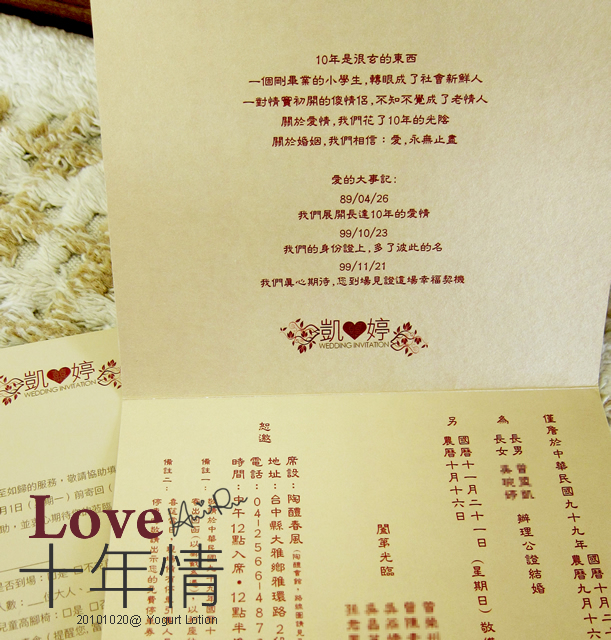 10年是很玄的東西
一個剛畢業的小學生,轉眼成了社會新鮮人
一對情竇初開的傻情侶,不知不覺成了老情人
關於愛情,我們花了10年的光陰
關於婚姻,我們相信：愛,永無止盡
愛的大事記:
89/04/26
我們展開長達10年的愛情
99/10/23
我們的身份證上,多了彼此的名
99/11/21
我們真心期待,您到場見證這場幸福契機
凱♥婷
WEDDING INVITATION
凱♥婷
WEDDING INVITATION
至如歸的服務，敬請協助填
月1日（
期一）前寄回（
是否到場：口是 口不
人數：__位大人、
兒童高腳椅：口是 口
謹詹於中華民國九十九年
國曆十月
農曆九月十六
為
長男
長女
辦理公證結婚
另
國曆十一月二十一日（星期日）敬
農曆十月十六日
闔第光臨
恕邀
席設：陶醴春風
地址：台中縣大雅鄉雅環路2
電話：04-2566-487
時間：中午12點入席•12點半
備註一：
備註二：
Love
十年情
20101020@ Yogurt Lotion